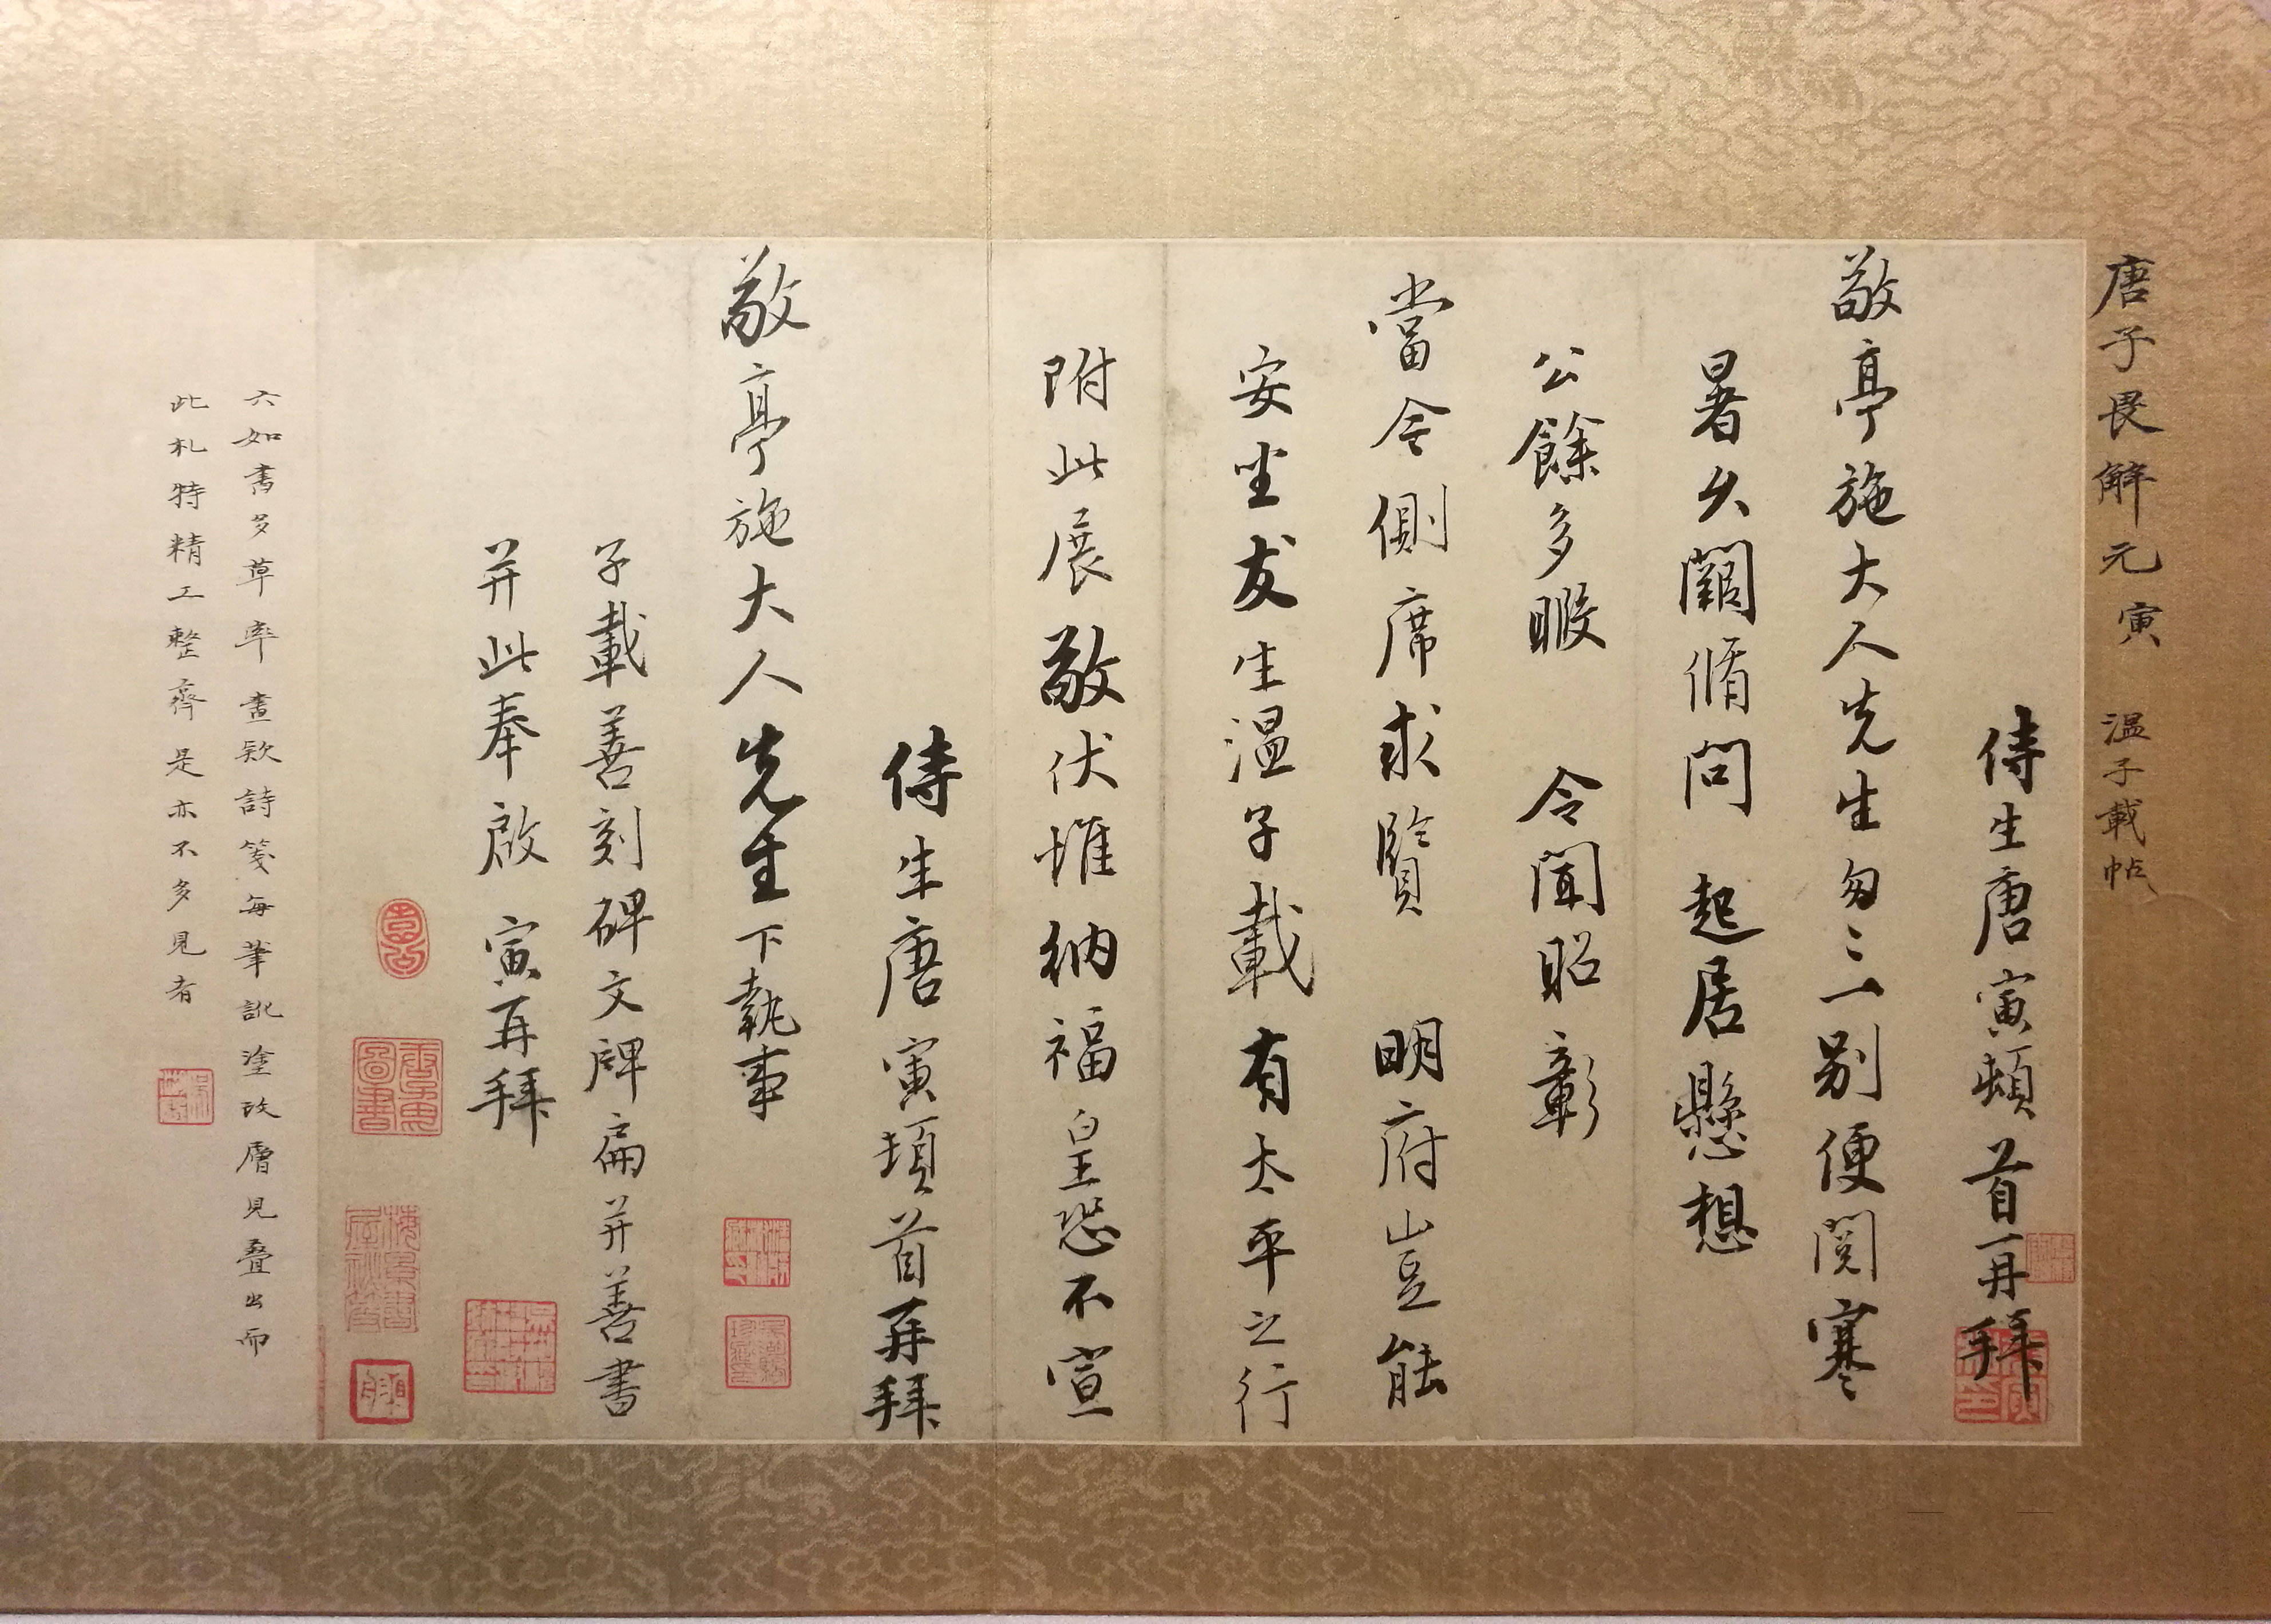 唐子畏解元寅 温子載帖
侍生唐寅頓首再拜
敬亭施大人先生匆〻一别便閱寒
暑久闊脩問 起居懸想
公餘多暇 令聞昭彰
當今側席求賢 明府豈能
安坐友生温子載有太平之行
附此展敬伏惟納福皇恐不宣
侍生唐寅頓首再拜
敬亭施大人先生下執事
子載善刻碑文牌扁并善書
并此奉啟 寅再拜
六如書多草率畫欵詩箋每筆訛塗改層見疊出而
此札特精工整齊是亦不多見者